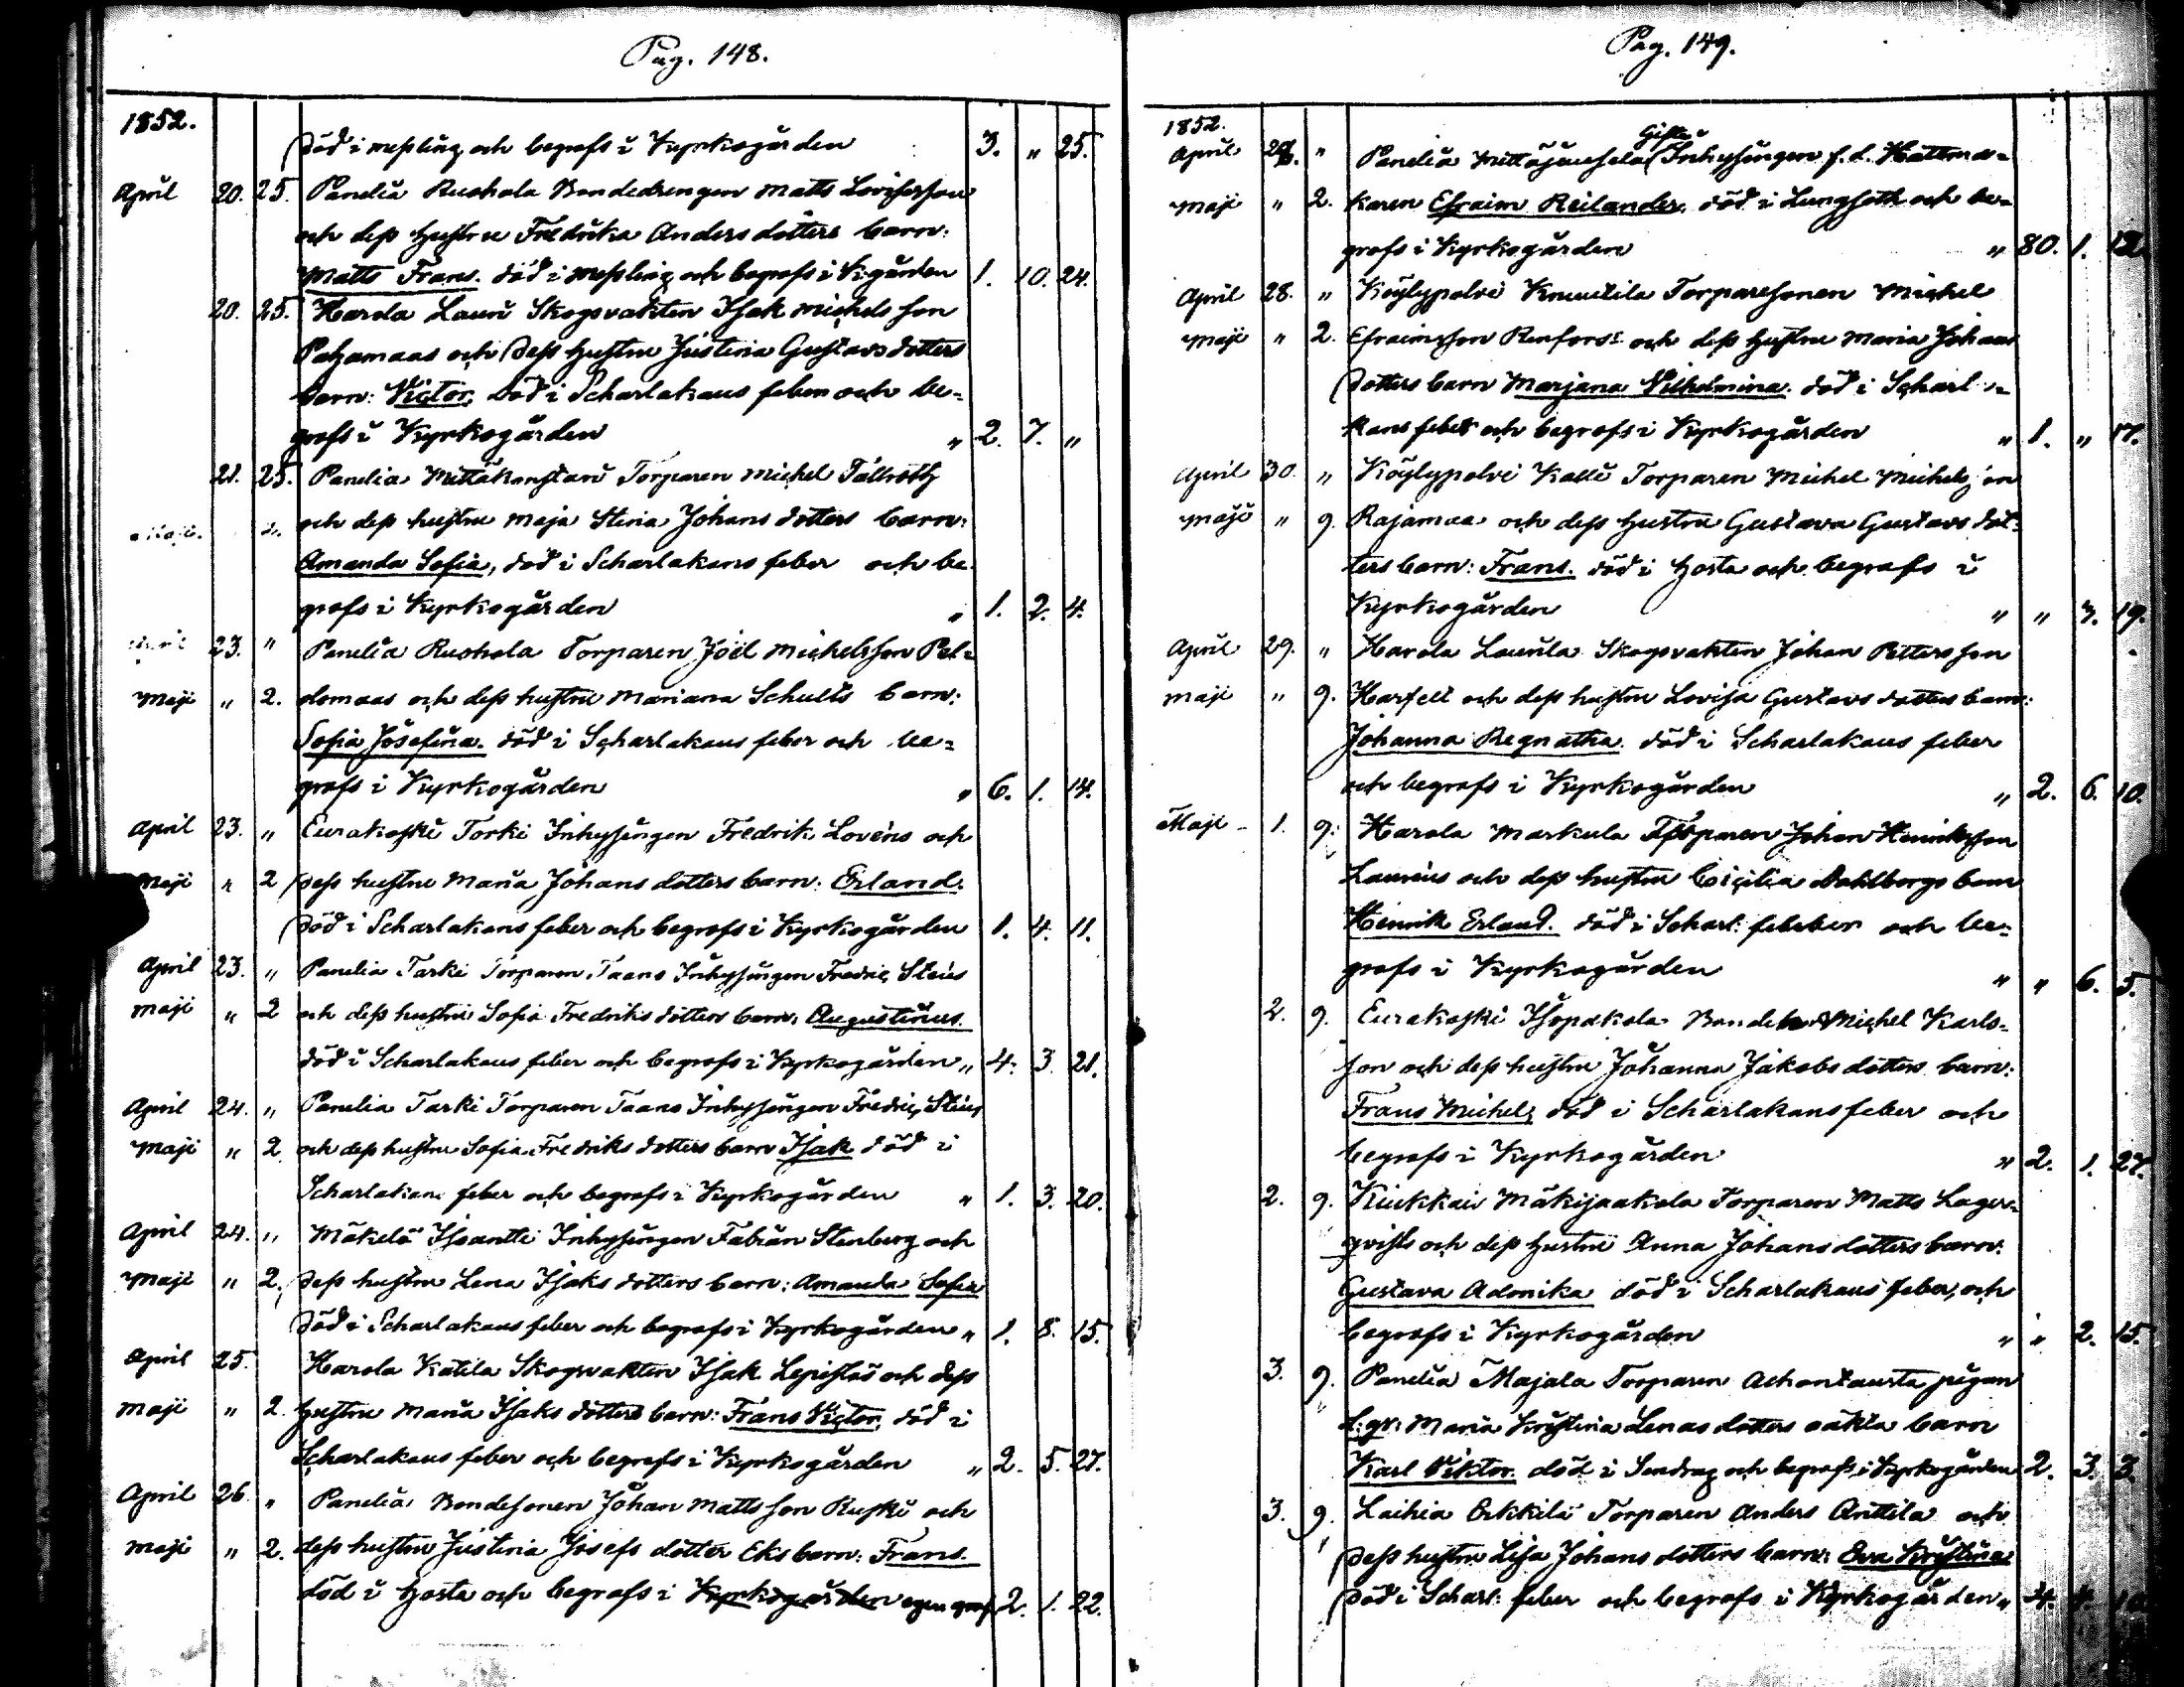 Pag. 148.
1852.
död i messling och begrofs i Kyrkogården 3. " 25.
April 20. 25. Panelia Ruohola Bondedrengen Matts Lovisesson
och dess hustru Fredrika Anders dotters barn:
Matts Frans. död i messling och begrofs i K.gården 1. 10. 24.
20. 25. Harola Lauri Skogsvakten Isak Michelsson
Pahamaas och dess hustru Justina Gustavs dotters
barn: Victor, död i Scharlakans feber och be-
grofs i Kyrkogården " 2. 7. "
21. 25. Panelia Mittäkonstari Torparen Michel Tallroth
och dess hustru Maja Stina Johans dotters barn:
Amanda Sofia, död i Scharlakans feber och be-
grofs i Kyrkogården " 1. 2. 4.
23. " Panelia Ruohola Torparen Joel Michelsson Pel-
Maji " 2. domaas och dess hustru Mariana Schults barn:
Sofia Josefina. död i Scharlakans feber och be-
grofs i Kyrkogården " 6. 1. 14.
April 23. " Eurakoski Torki Inhysingen Fredrik Lovéns och
Maji " 2 dess hustru Maria Johans dotters barn: Erland.
död i Scharlakans feber och begrofs i Kyrkogården 1. 4. 11.
April 23. " Panelia Tarki Torparen Taans Inhysingen Fredric Steus
Maji " 2 och dess hustru Sofia Fredriks dotters barn: Augustinus.
död i Scharlakans feber och begrofs i Kyrkogården " 4. 3. 21.
April 24. " Panelia Tarki Torparen Taans Inhysingen Fredric Steus
Maji " 2 och dess hustru Sofia Fredriks dotters barn Isak död i
Scharlakans feber och begrofs i Kyrkogården " 1. 3. 20.
April 24. " Mäkelä Isoantti Inhysingen Fabian Stenberg och
Maji " 2. dess hustru Lena Isaks dotters barn: Amanda Sofia
död i Scharlakans feber och begrofs i Kyrkogården " 1. 8. 15.
April 25. Harola Katila Skogsvakten Isak Lepistös och dess
Maji " 2. hustru Maria Isaks dotters barn: Frans Victor, död i
Scharlakans feber och begrofs i Kyrkogården " 2. 5. 27.
April 26. " Panelia Bondesonen Johan Mattsson Ruski och
Maji " 2. dess hustru Justina Josefs dotter Eks barn: Frans.
död i Hosta och begrofs i Kyrkogården egen graf 2. 1. 22.
Pag. 149.
1852.
April " Panelia Mittäjauhola Gifte Inhysingen f.d. Hattma-
Maji " 2. karen Efraim Reilander, död i Lungsott och be-
grofs i Kyrkogården " 80. 1. 12.
April 28. " Köylypolvi Knuutila Torparesonen Michel
Maji " 2. Efraimsson Renfors och dess hustru Maria Johans
dotters barn Marjana Vilhelmina. död i Scharla-
kans feber och begrofs i Kyrkogården " 1. " 17.
April 30. " Köylypolvi Kalli Torparen Michel Michelsson
Maji " 9. Rajamaa och dess hustru Gustava Gustavs dot-
ters barn: Frans. död i Hosta och begrofs i
Kyrkogården " " 3. 19.
April 29. " Harola Laurila Skogsvakten Johan Pettersson
Maji " 9. Harfelt och dess hustru Lovisa Gustavs dotters barn:
Johanna Regnatha. död i Scharlakans feber
och begrofs i Kyrkogården " 2. 6. 10.
Maji 1. 9. Harola Markula Torparen Johan Henriksson
Laurius och dess hustru Cicilia Dahlbergs barn
Henrik Erland. död i Scharl: febeber och be-
grofs i Kyrkogården " " 6. 5.
2. 9. Eurakoski Isopakola Bonden Michel Karls-
son och dess hustru Johanna Jakobs dotters barn:
Frans Michel, död i Scharlakans feber och
begrofs i Kyrkogården " 2. 1. 27.
2. 9. Kiukkais Mäkijaakola Torparen Matts Lager-
qvists och dess hustru Anna Johans dotters barn:
Gustava Adonika död i Scharlakans feber, och
begrofs i Kyrkogården " " 2. 15.
3. 9. Panelia Majala Torparen Achontausta pigan
Maria Kristina Lenas dotters oäkta barn
Karl Viktor. död i Sendrag och begrofs i Kyrkogården 2. 3. 3.
3. 9. Laihia Erkkilä Torparen Anders Anttila och
dess hustru Lisa Johans dotters barn: Eva Kristina
död i Scharl: feber och begrofs i Kyrkogården " 4.